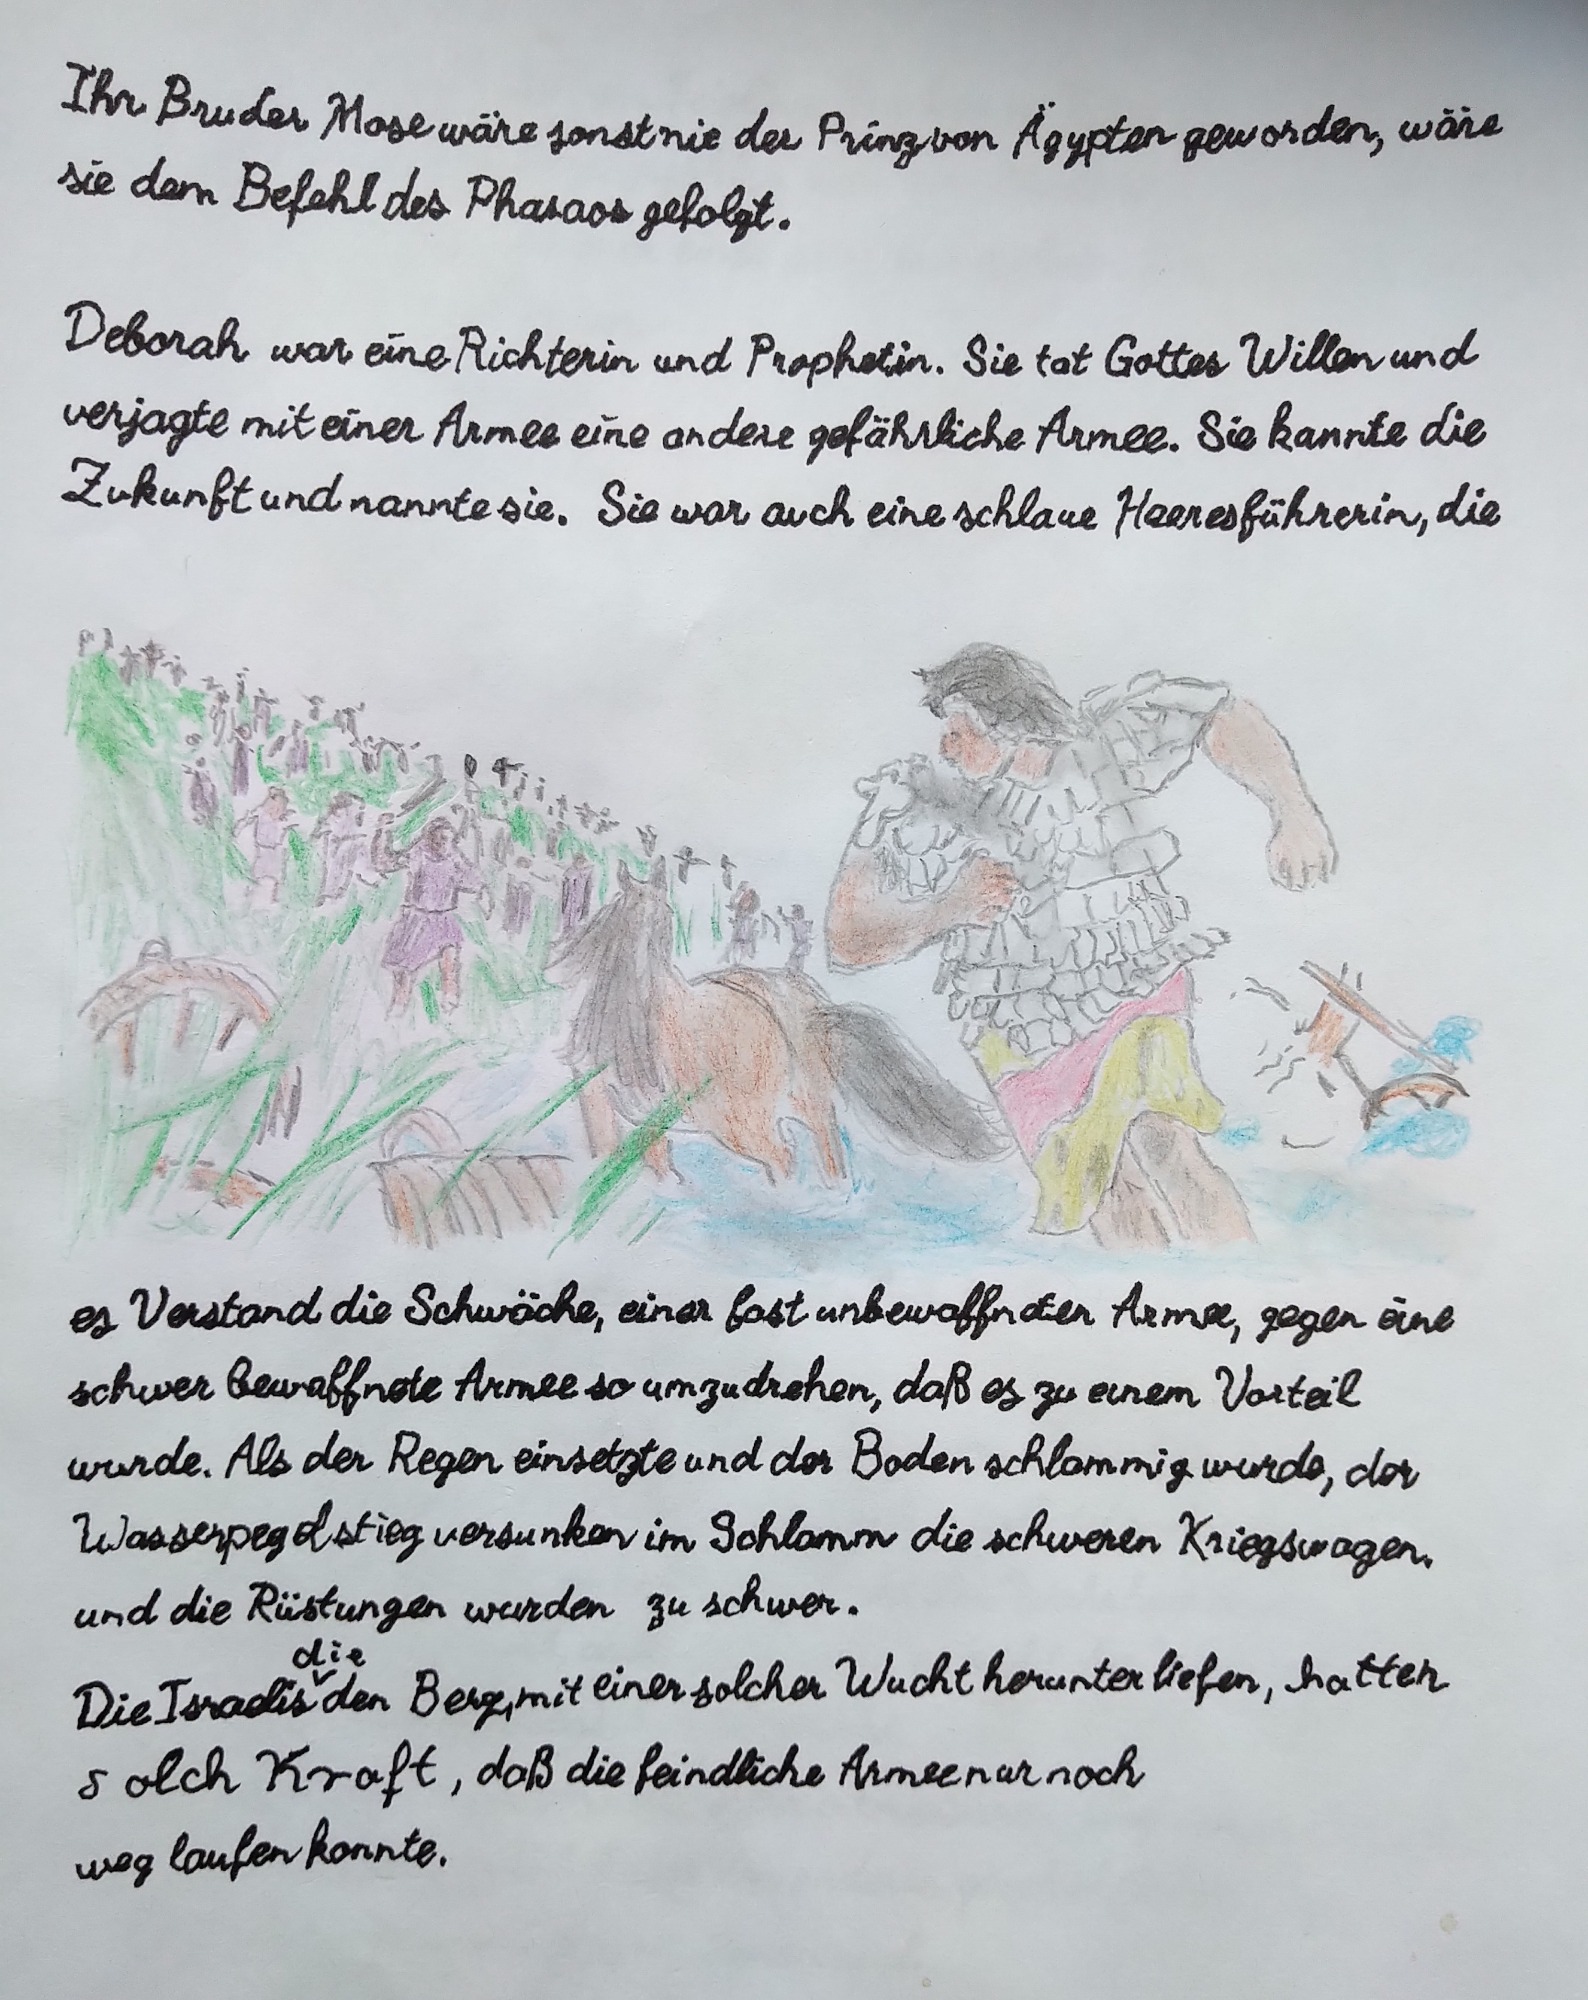 Ihr Bruder Mose wäre sonst nie der Prinz von Ägypten geworden, wäre
sie dem Befehl des Pharaos gefolgt.
Deborah war eine Richterin und Prophetin. Sie tat Gottes Willen und
verjagte mit einer Armee eine andere gefährliche Armee. Sie kannte die
Zukunft und nannte sie. Sie war auch eine schlaue Heeresführerin, die
es Verstand die Schwäche, einer fast unbewaffneten Armee, gegen eine
schwer bewaffnete Armee so umzudrehen, daß es zu einem Vorteil
wurde. Als der Regen einsetzte und der Boden schlammig wurde, der
Wasserpegel stieg versunken im Schlamm die schweren Kriegswagen.
und die Rüstungen wurden zu schwer.
die
Die Israelis den Berg, mit einer solcher Wucht herunter liefen, hatten
solch Kraft, daß die feindliche Armee nur noch
weg laufen konnte.